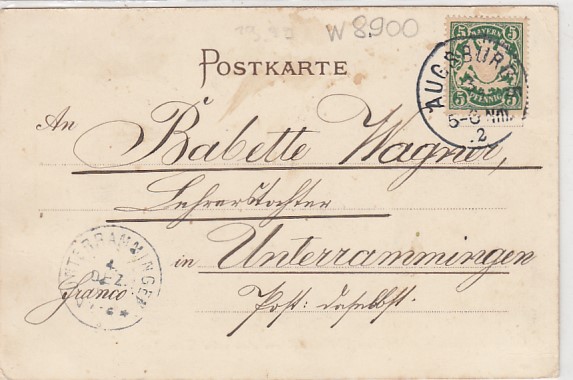 W 8900
POSTKARTE
BAYERN
5 5
PFENNIG
5 5
AUGSBURG
5-6 NM.
.2
An
Babette Wagner,
Lehrerstochter
in Unterrammingen
Post: daselbst.
franco
UNTERRAMMINGEN
4
DEZ.